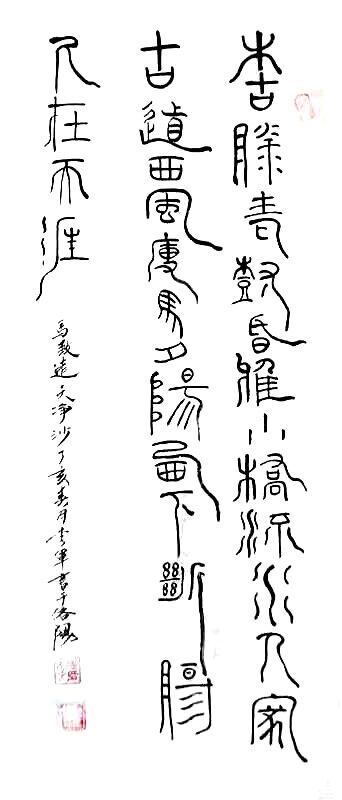 枯藤老樹昏雅小橋流水人家
古道西風瘦馬夕陽西下斷腸
人在天涯
馬致遠天净沙丁亥春月軍書于洛陽